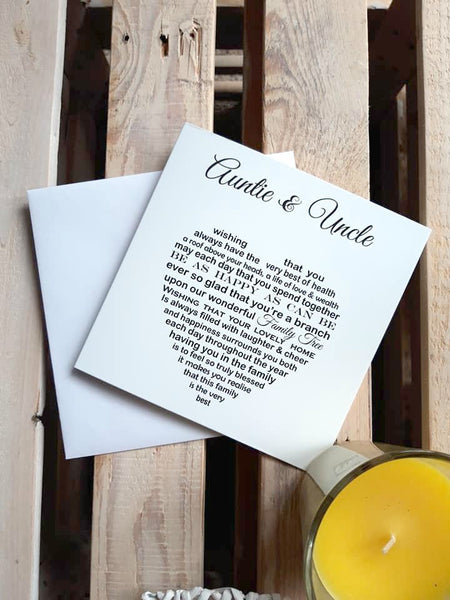 Auntie & Uncle
wishing that you
always have the very best of health
a roof above your heads, a life of love & wealth
may each day that you spend together
BE AS HAPPY AS CAN BE
ever so glad that you're a branch
upon our wonderful Family Tree
WISHING THAT YOUR LOVELY HOME
Is always filled with laughter & cheer
and happiness surrounds you both
each day throughout the year
having you in the family
is to feel so truly blessed
it makes you realise
that this family
is the very
best